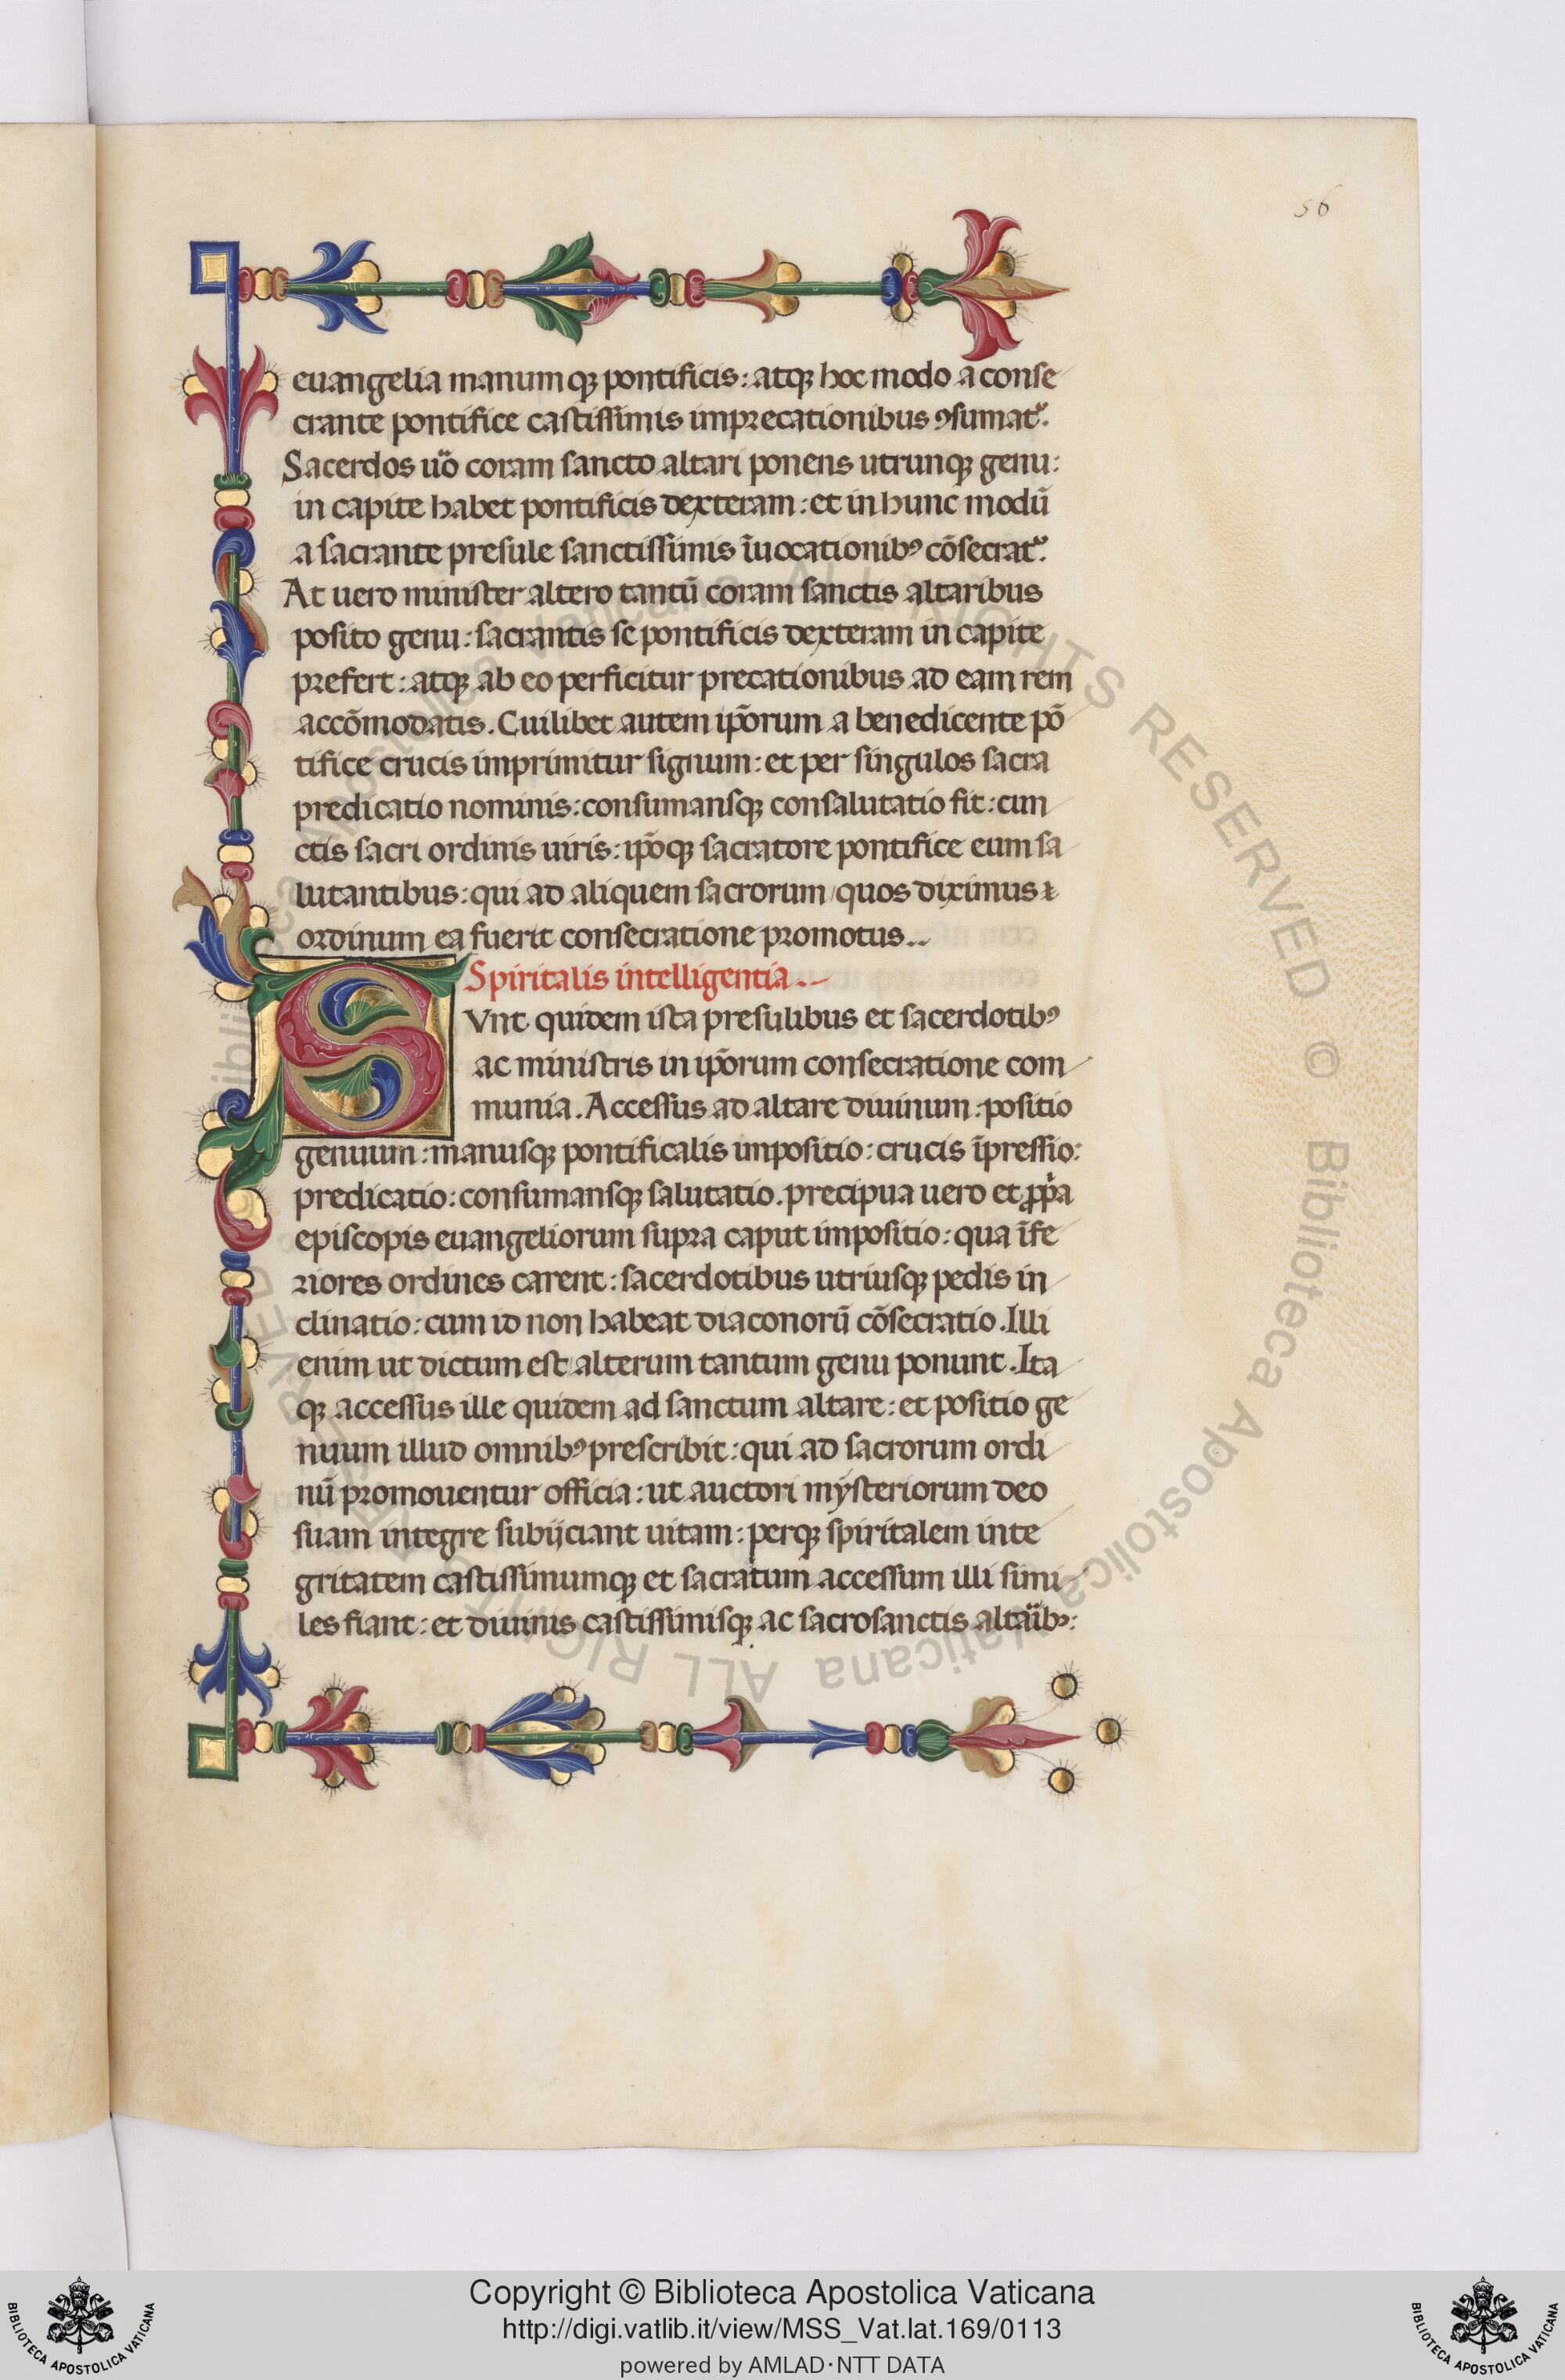 56
euangelia manumqꝫ pontificis: atqꝫ hoc modo a conse
crante pontifice castissimis imprecationibus ꝯsumat᷑.
Sacerdos uo͂ coram sancto altari ponens utrunqꝫ genu:
in capite habet pontificis dexteram: et in hunc modū
a sacrante presule sanctissimis īuocationibꝰ cōsecrat᷑.
At uero minister altero tantū coram sanctis altaribus
posito genu: sacrantis se pontificis dexteram in capite
prefert: atqꝫ ab eo perficitur precationibus ad eam rem
accōmodatis. Cuilibet autem ip̄orum a benedicente pō
tifice crucis imprimitur signum: et per singulos sacra
predicatio nominis: consumansqꝫ consalutatio fit: cun
ctis sacri ordinis uiris: ip̄oqꝫ sacratore pontifice eum sa
lutantibus: qui ad aliquem sacrorum quos diximus
ordinum ea fuerit consecratione promotus..
Spiritalis intelligentia.
SVnt quidem ista presulibus et sacerdotibꝰ
ac ministris in ip̄orum consecratione com
munia. Accessus ad altare diuinum: positio
genuum: manusqꝫ pontificalis impositio: crucis īpressio:
predicatio: consumansqꝫ salutatio. precipua uero et ꝓp̄a
episcopis euangeliorum supra caput impositio: qua īfe
riores ordines carent: sacerdotibus utriusqꝫ pedis in
clinatio: cum id non habeat diaconorū cōsecratio. Illi
enim ut dictum est alterum tantum genu ponunt. Ita
qꝫ accessus ille quidem ad sanctum altare: et positio ge
nuum illud omnibꝰ prescribit: qui ad sacrorum ordi
nū promouentur officia: ut auctori mysteriorum deo
suam integre subijciant uitam: perqꝫ spiritalem inte
gritatem castissimumqꝫ et sacratum accessum illi simi-
les fiant: et diuinis castissimisqꝫ ac sacrosanctis altaībꝫ:
Biblioteca Apostolica Vaticana ALL RIGHTS RESERVED ©
Copyright © Biblioteca Apostolica Vaticana
http://digi.vatlib.it/view/MSS_Vat.lat.169/0113
powered by AMLAD·NTT DATA
BIBLIOTECA APOSTOLICA VATICANA
BIBLIOTECA APOSTOLICA VATICANA